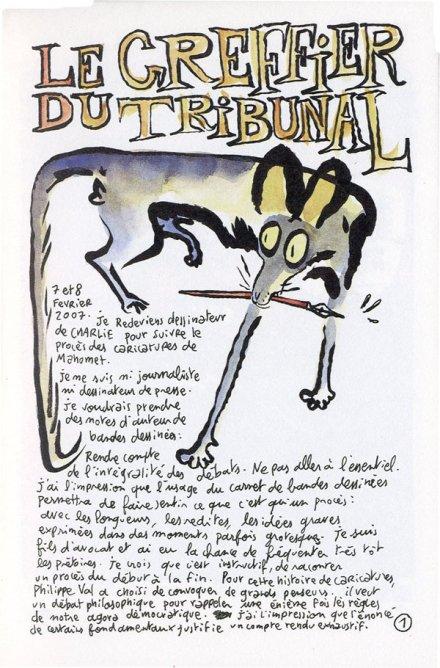 LE GREFFIER
DU TRIBUNAL
7 et 8
FEVRIER
2007. Je Redeviens dessinateur
de CHARLIE pour suivre le
procès des caricatures de
Mahomet.
Je ne suis ni journaliste
ni dessinateur de presse.
Je voudrais prendre
des notes d'auteur de
bandes dessinées :
Rendre compte
de l'intégralité des débats. Ne pas aller à l'essentiel.
j'ai l'impression que l'usage du carnet de bandes dessinées
permettra de faire sentir ce que c'est qu'un procès :
avec les longueurs, les redites, les idées graves
exprimées dans des moments parfois grotesques. Je suis
fils d'avocat et ai eu la chance de fréquenter très tôt
les prétoires. Je crois que c'est instructif, de raconter
un procès du début à la fin. Pour cette histoire de caricatures,
Philippe Val a choisi de convoquer de grands penseurs. il veut
un débat philosophique pour rappeler une énième fois les règles
de notre agora démocratique. j'ai l'impression que l'énoncé
de certains fondamentaux justifie un compte rendu exhaustif.
1